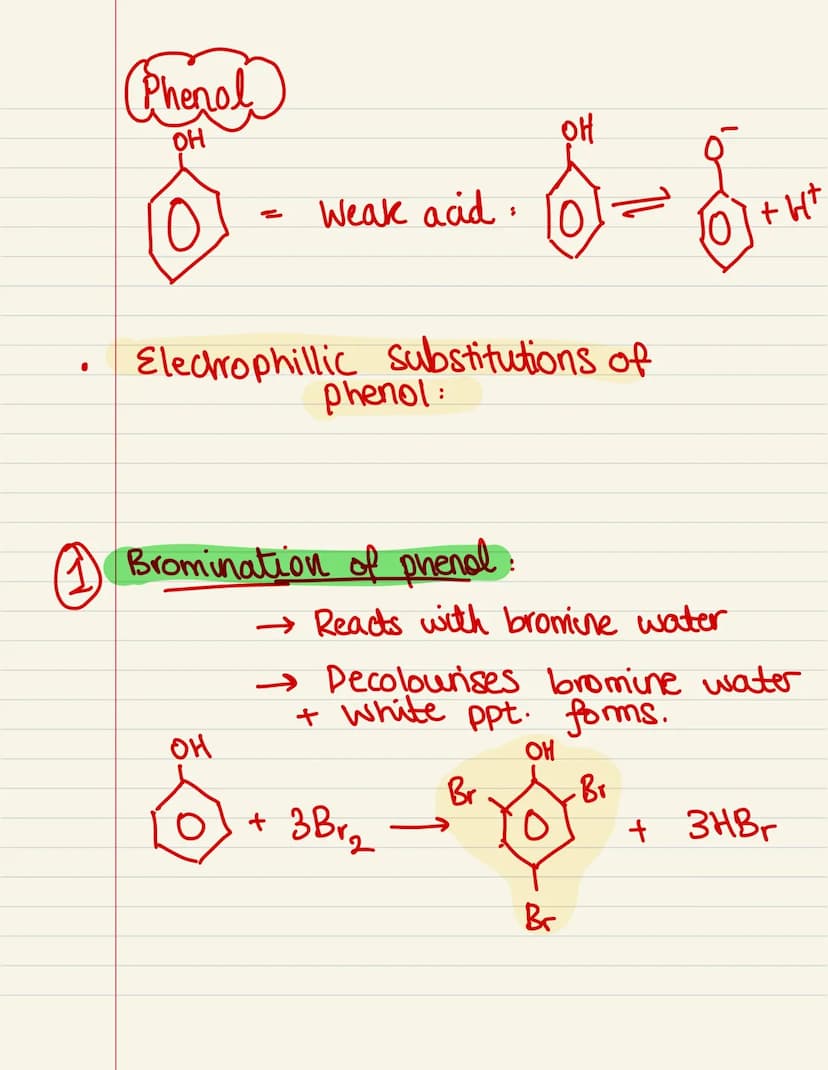 Phenol
OH
= Weak acid : OH ⇌ O⁻ + H⁺
• Electrophillic substitutions of
phenol :
① Bromination of phenol :
→ Reacts with bromine water
→ Decolourises bromine water
+ white ppt. forms.
OH + 3Br₂ → OH Br Br Br + 3HBr